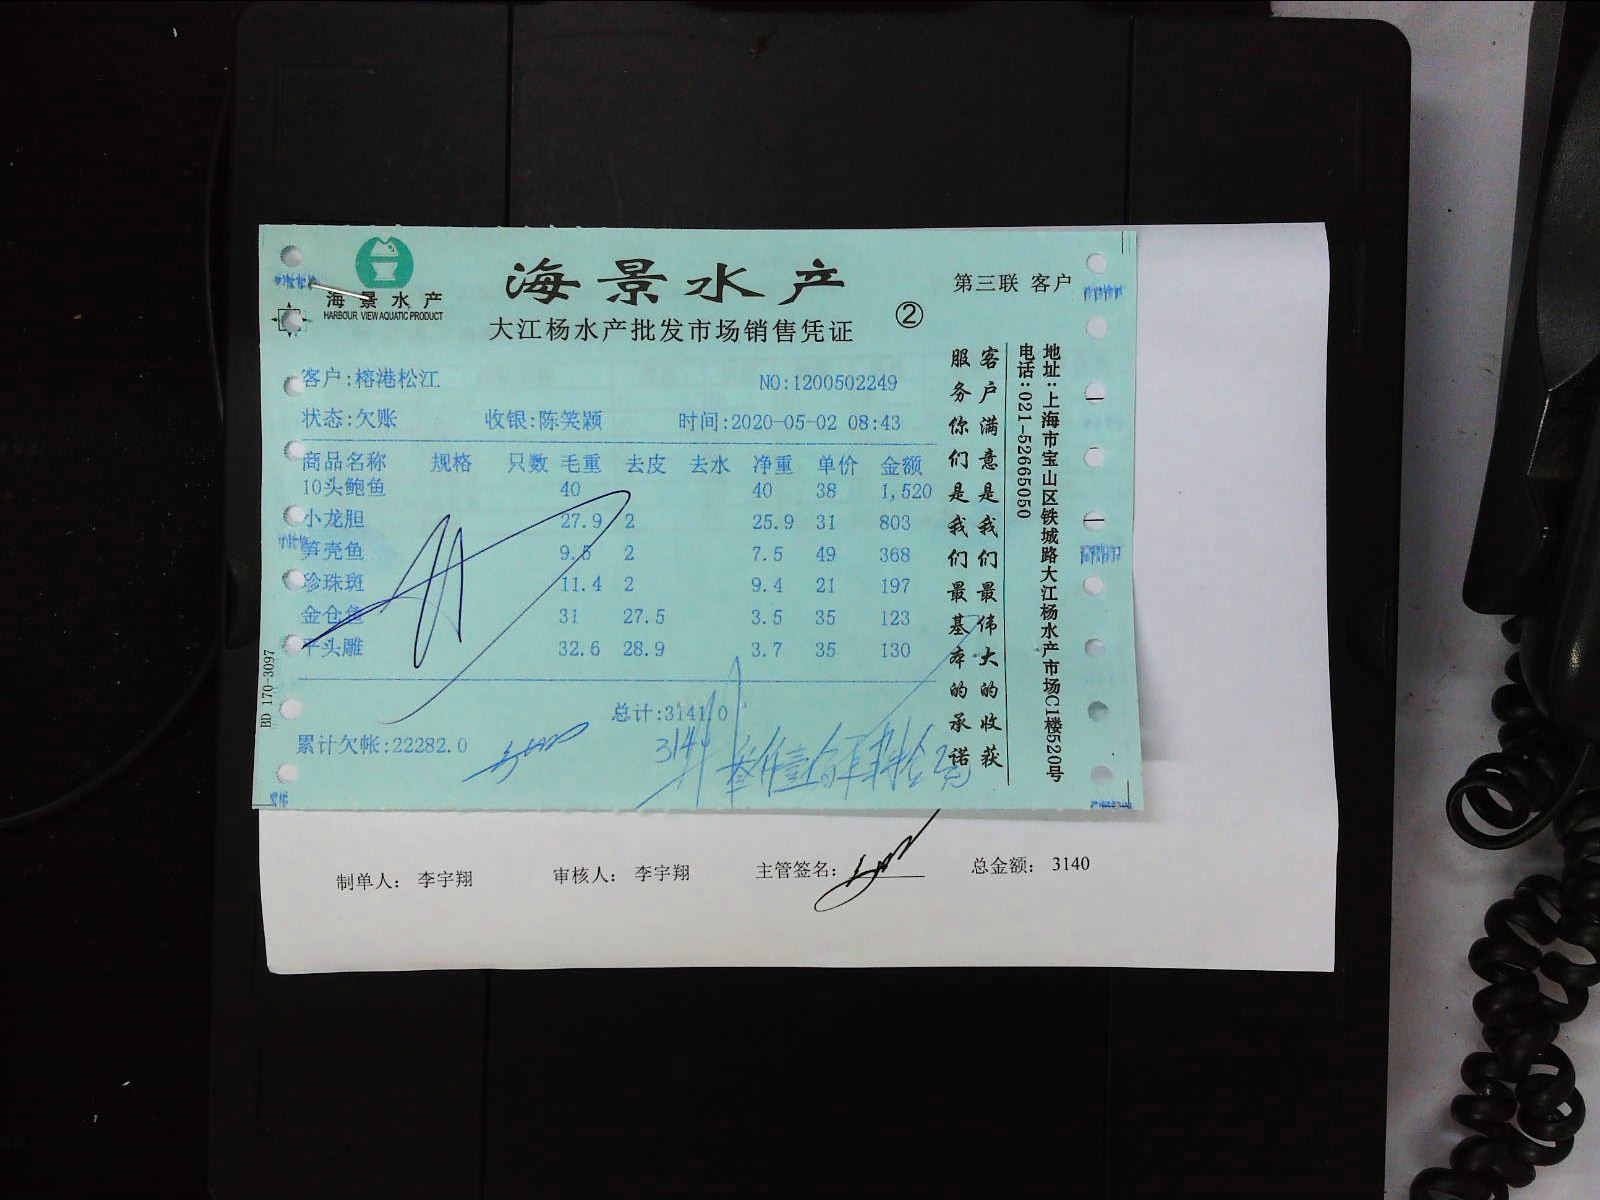 海景水产
HARBOUR VIEW AQUATIC PRODUCT
海景水产
第三联 客户
大江杨水产批发市场销售凭证
②
客户:榕港松江 NO:1200502249
状态:欠账 收银:陈笑颖 时间:2020-05-02 08:43
商品名称 规格 只数 毛重 去皮 去水 净重 单价 金额
10头鲍鱼 40 40 38 1,520
小龙胆 27.9 2 25.9 31 803
笋壳鱼 9.5 2 7.5 49 368
珍珠斑 11.4 2 9.4 21 197
金仓鱼 31 27.5 3.5 35 123
平头雕 32.6 28.9 3.7 35 130
总计:3141.0
累计欠帐:22282.0
客户满意是我们最伟大的收获
服务你们是我们最基本的承诺
地址:上海市宝山区铁城路大江杨水产市场C1楼520号
电话:021-52665050
BD 170-3097
制单人： 李宇翔 审核人： 李宇翔 主管签名: 总金额： 3140